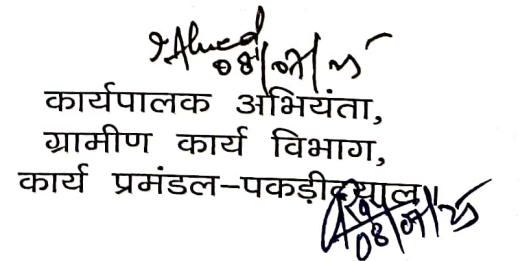 Ahmed
08/07/25
कार्यपालक अभियंता,
ग्रामीण कार्य विभाग,
कार्य प्रमंडल-पकड़ीदयाल।
08/07/25